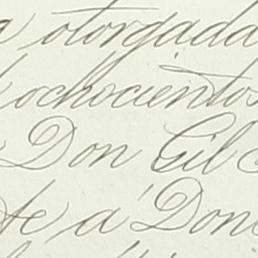 a otorgada
ochocientos
Don Gil
te a Don